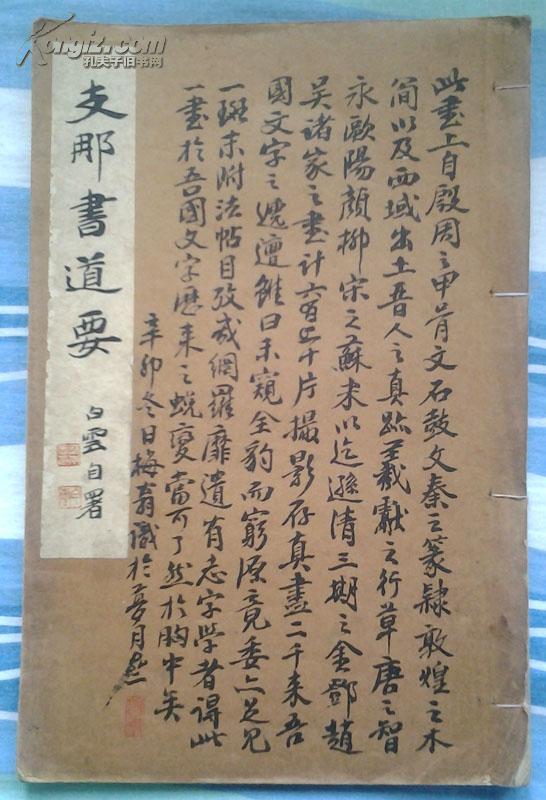 Kongfz.com
孔夫子旧书网
此書上自殷周之甲骨文石鼓文秦之篆隸敦煌之木
簡以及西域出土晋人之真跡羲獻之行草唐之智
永歐陽顏柳宋之蘇米以迄遜清三期之金鄧趙
吴诸家之書計六百五十片撮影存真盡二千来吾
國文字之嬗雖曰未窺全豹而窮源竟委亦足見
一斑末附法帖目攷咸網羅靡遺有志字學者得此
一書於吾國文字歷来之蜕變當可了然於胸中矣
辛卯冬日梅翁識於夢月
支那書道要
白雲自署